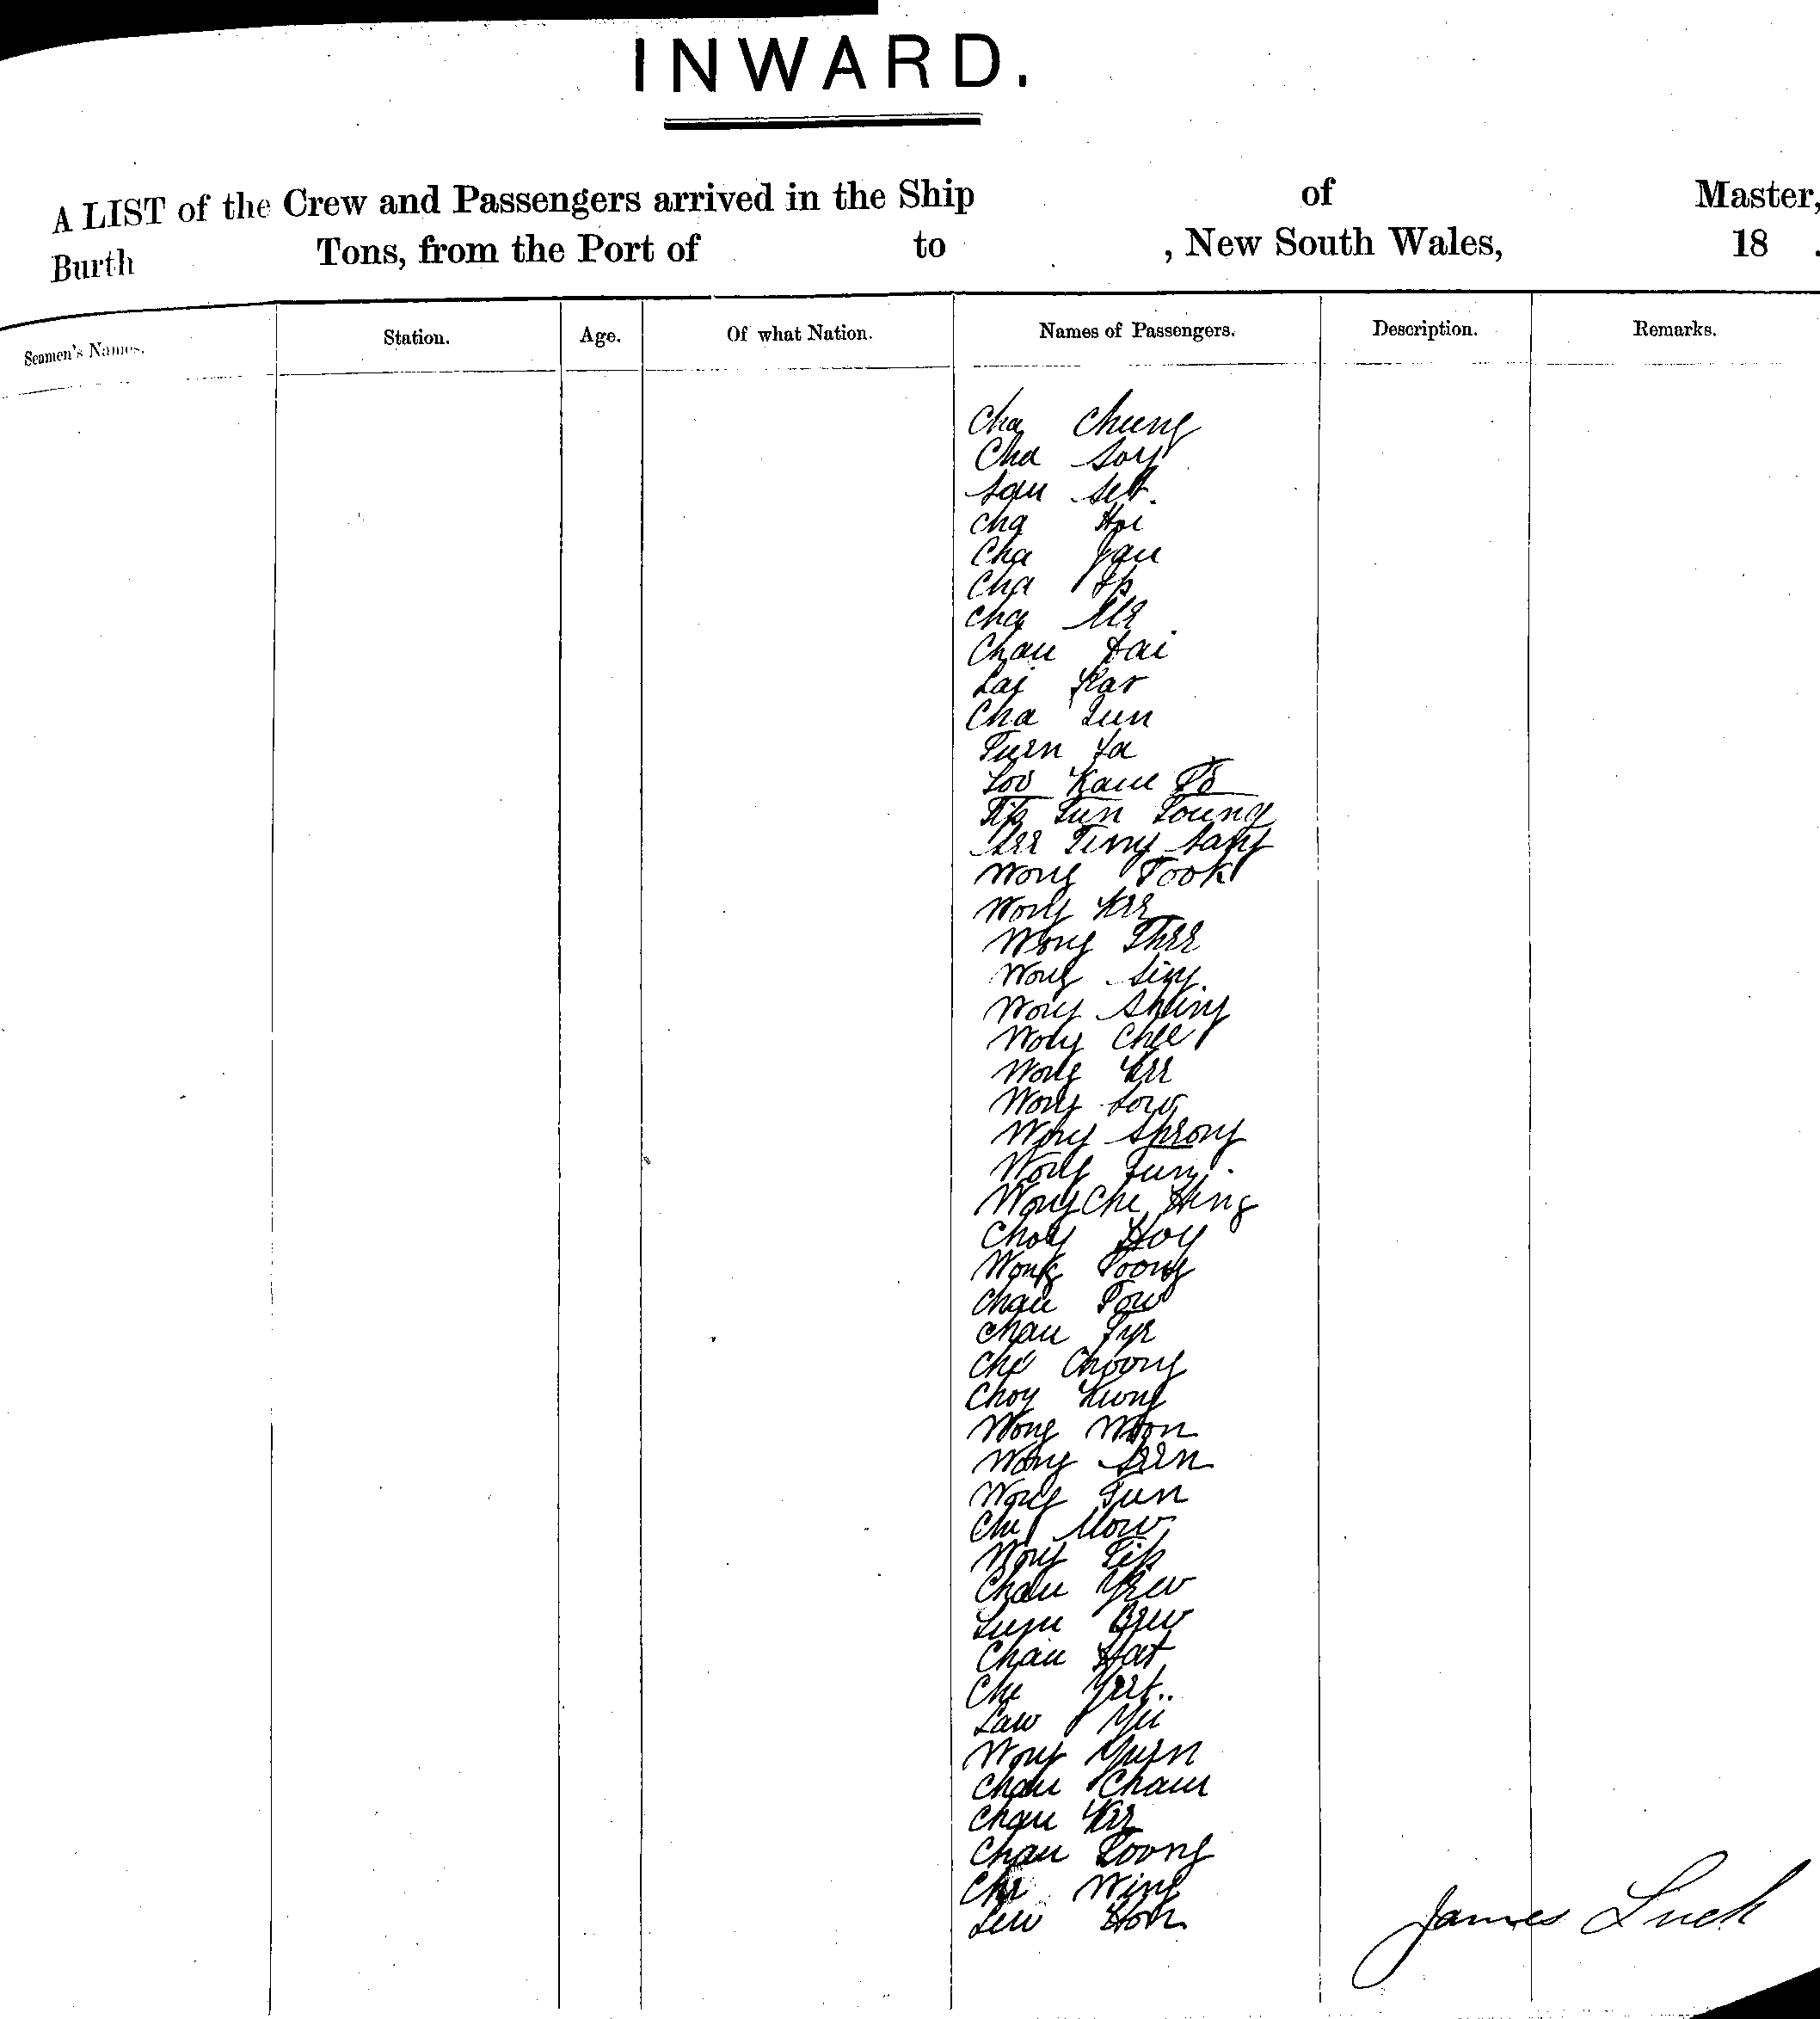 INWARD.
A LIST of the Crew and Passengers arrived in the Ship of Master,
Burth Tons, from the Port of to , New South Wales, 18 .
Seamen's Names. Station. Age. Of what Nation. Names of Passengers. Description. Remarks.
Cha Chung
Cha Soy
Sau
Cha Hoi
Cha Jau
Cha
Cha
Chau Hai
Lai
Cha Lun
La
Loo
Tip Tun Toung
Wong Took
Wong Kee
Wong Thee
Wong Sing
Wong Shing
Wong Chee
Wong Kee
Wong Low
Wong
Wong
Wong Che Hing
Choy Hoy
Wong Poong
Chau Tow
Chau
Che Choong
Choy Kung
Wong Moon
Wong Seen
Wong Tun
Che Mow
Wong Tip
Chau Yew
Chau Hat
Che
Law Yii
Wong Yuen
Chau Cham
Chau Kee
Chau Loong
Che Wing
Lew Hon
James Luck